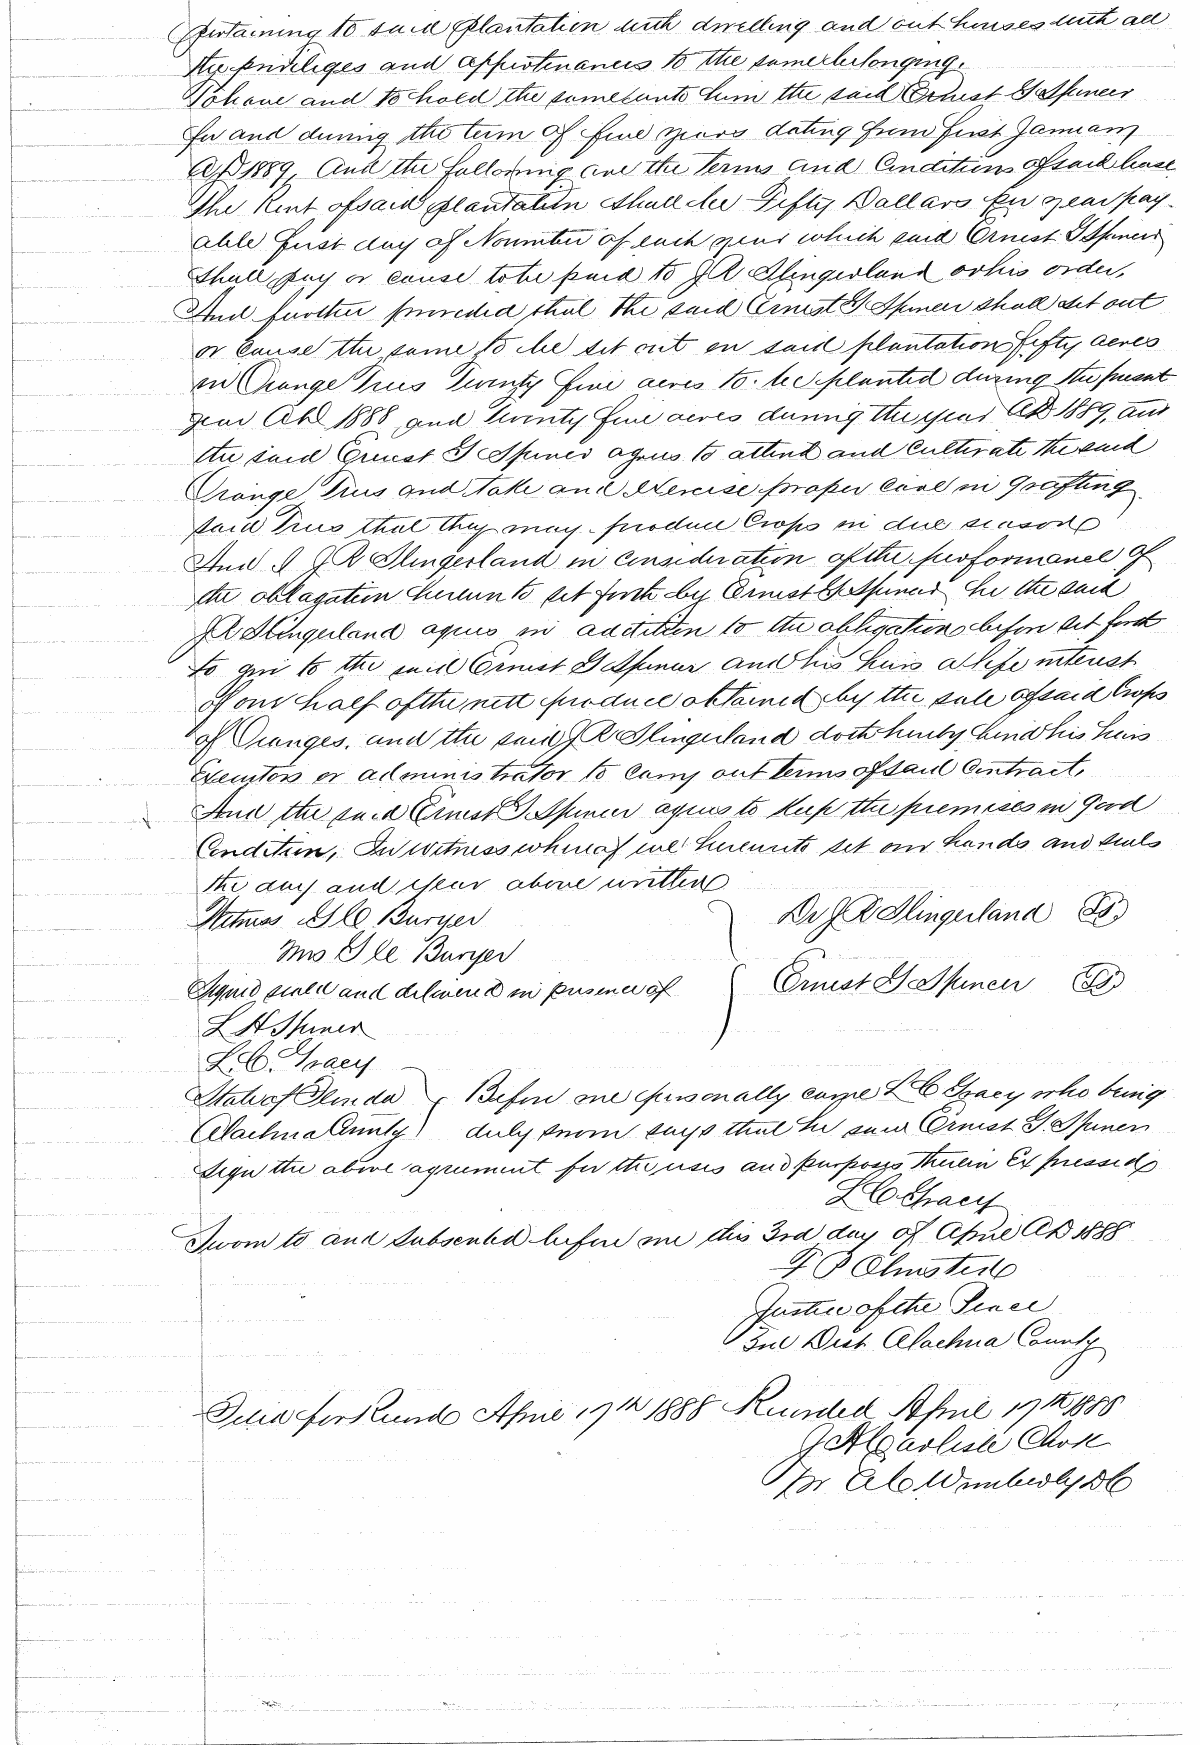 pertaining to said plantation with dwelling and out houses with all
the priviliges and appurtinances to the same belonging.
To have and to hold the same unto him the said Ernest G Spencer
for and during the term of five years dating from first January
AD 1889, And the following are the Terms and Conditions of said lease
The Rent of said plantation shall be Fifty Dollars per year pay-
able first day of November of each year which said Ernest G Spencer
shall pay or cause to be paid to J R Slingerland or his order,
And further provided that the said Ernest G Spencer shall set out
or cause the same to be set out on said plantation fifty acres
in Orange Trees Twenty five acres to be planted during the present
year AD 1888 and Twenty five acres during the year AD 1889, and
the said Ernest G Spencer agrees to attend and Cultivate the said
Orange Trees and take and Exercise proper care in grafting
said Trees that they may produce Crops in due season
And I J R Slingerland in consideration of the performance of
the obligation herein to set forth by Ernest G Spencer he the said
J R Slingerland agrees in addition to the obligations before set forth
to give to the said Ernest G Spencer and his heirs a life interest
of one half of the nett produce obtained by the sale of said Crops
of Oranges, and the said J R Slingerland doth hereby bind his heirs
Executors or administrator to carry out terms of said Contract,
And the said Ernest G Spencer agrees to keep the premises in good
Condition, In witness whereof we hereunto set our hands and seals
the day and year above written
Witness G C Buryer Dr J R Slingerland
Mrs G C Buryer
Signed seald and delivered in presence of Ernest G Spencer
L H Spencer
L. C. Gracy
State of Florida Before me personally came L C Gracy who being
Alachua County duly sworn says that he saw Ernest G. Spencer
sign the above agreement for the uses and purposes therein Expressed
L C Gracy
Sworn to and subscribed before me this 3rd day of April AD 1888
F P Olmsted
Justice of the Peace
3rd Dist Alachua County
Filed for Record April 17th 1888 Recorded April 17th 1888
J A Carlisle Clerk
Pr A C Wimberly DC